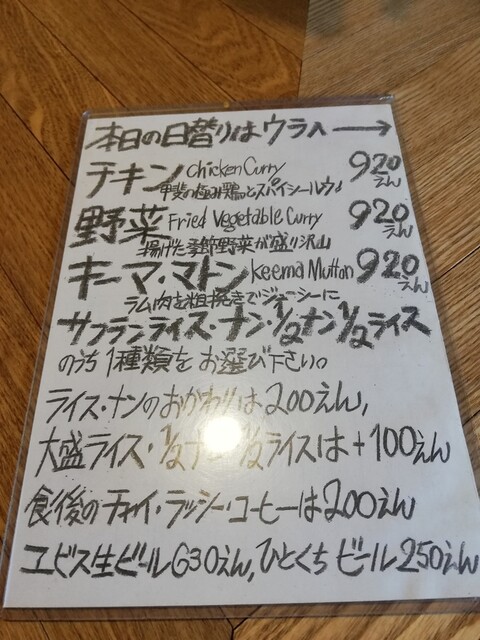 本日の日替りはウラへ→
チキン Chicken Curry 920えん
甲斐の極み鶏とスパイシールウ♪
野菜 Fried Vegetable Curry 920えん
揚げた季節野菜が盛り沢山
キーマ・マトン Keema Mutton 920えん
ラム肉を粗挽きでジューシーに
サフランライス・ナン・½ナン½ライス
のうち1種類をお選び下さい。
ライス・ナンのおかわりは200えん,
大盛ライス・½ナ ½ライスは+100えん
食後のチャイ・ラッシー・コーヒーは200えん
ヱビス生ビール630えん,ひとくちビール250えん